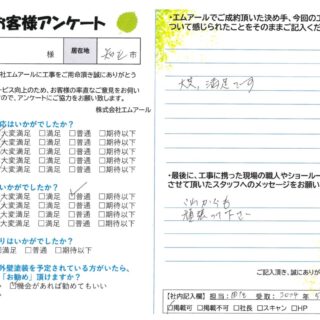 お客様アンケート
様 居在地 知立市
社エムアールに工事をご用命頂き誠にありがとう
ービス向上のため、お客様の率直なご意見をお伺い
すので、アンケートにご協力をお願い致します。
株式会社エムアール
応はいかがでしたか？
大変満足 □満足 □普通 □期待以下
大変満足 □満足 □普通 □期待以下
大変満足 □満足 □普通 □期待以下
大変満足 □満足 □普通 □期待以下
いかがでしたか？
大変満足 □満足 □普通 □期待以下
大変満足 □満足 □普通 □期待以下
大変満足 □満足 □普通 □期待以下
りはいかがでしたか？
大変満足 □満足 □普通 □期待以下
外壁塗装を予定されている方がいたら、
「お勧め」頂けますか？
□機会があれば勧めてもいい
・エムアールでご成約頂いた決め手、今回の工
ついて感じられたことをそのままご記入くだ
大変、満足です
・最後に、工事に携った現場の職人やショールー
させて頂いたスタッフへのメッセージをお願い
これからも
頑張って下さい
ご記入頂き、誠にあり
【社内記入欄】 担当： 受取：2024年
掲載可 □掲載不可 □社長 □スキャン □HP